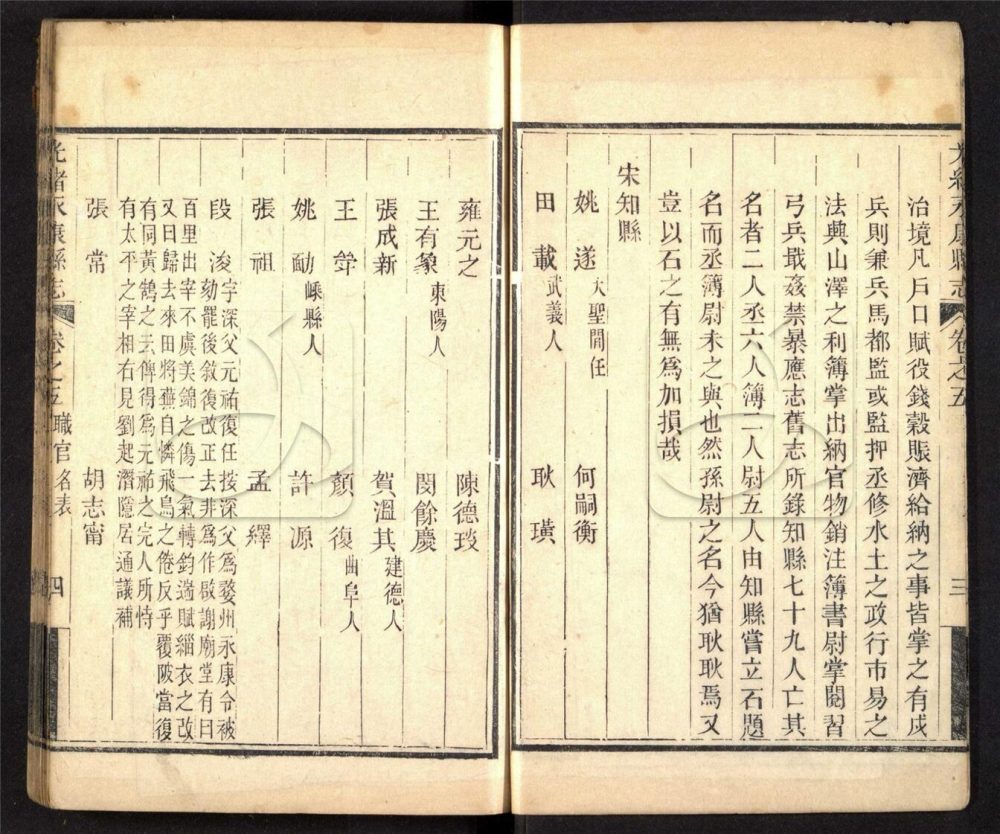 光緒永康縣志 卷之五 三
治境凡戶口賦役錢穀賑濟給納之事皆掌之有戍
兵則兼兵馬都監或監押丞修水土之政行市易之
法興山澤之利簿掌出納官物銷注簿書尉掌閱習
弓兵戢姦禁暴應志舊志所錄知縣七十九人亡其
名者二人丞六人簿二人尉五人由知縣嘗立石題
名而丞簿尉未之與也然孫尉之名今猶耿耿焉又
豈以石之有無為加損哉
宋知縣
姚遂 大聖間任 何嗣衡
田載 武義人 耿璜
雍元之 陳德琰
王有象 東陽人 閔餘慶
張成新 賀溫其 建德人
王 顏復 曲阜人
姚勔 嵊縣人 許源
張祖 孟繹
段浚 字深父元祐復任按深父為婺州永康令被
劾罷後敘復改正去非為作啟謝廟堂有曰
百里出宰不虞美錦之傷一氣轉鈞遄賦緇衣之改
又曰歸去來田將蕪自憐飛鳥之倦反乎覆陂當復
有同黃鵠之去傳得為元祐之完人所恃
有太平之宰相右見劉起潛隱居通議補
張常 胡志甯
光緒永康縣志 卷之五 職官名表 四